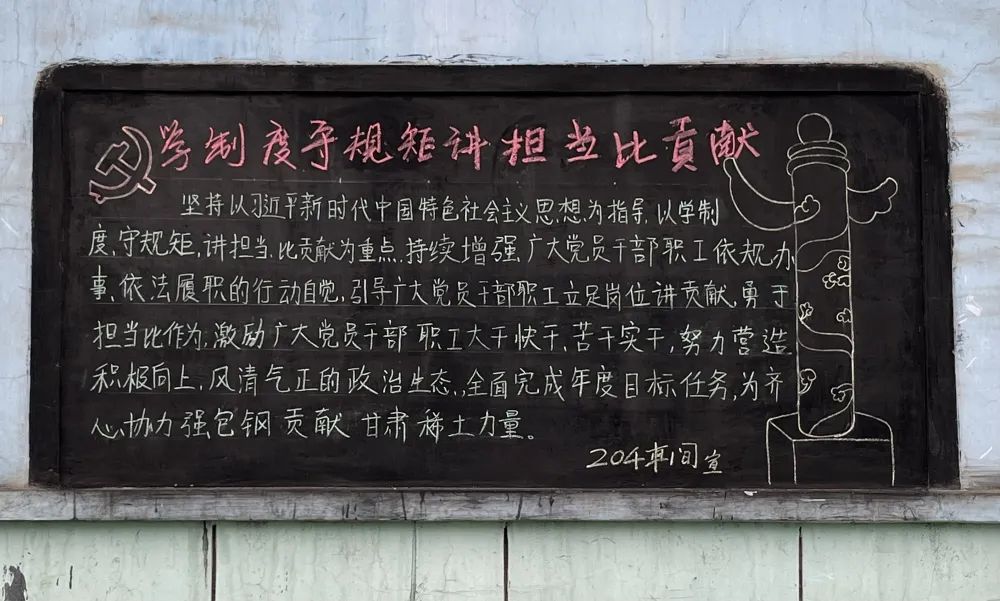 学制度守规矩讲担当比贡献
坚持以习近平新时代中国特色社会主义思想为指导,以学制
度,守规矩,讲担当,比贡献为重点,持续增强广大党员干部职工依规办
事、依法履职的行动自觉,引导广大党员干部职工立足岗位讲贡献,勇于
担当比作为,激励广大党员干部职工大干快干、苦干实干,努力营造
积极向上、风清气正的政治生态,全面完成年度目标任务,为齐
心协力强包钢贡献甘肃稀土力量。
204车间宣